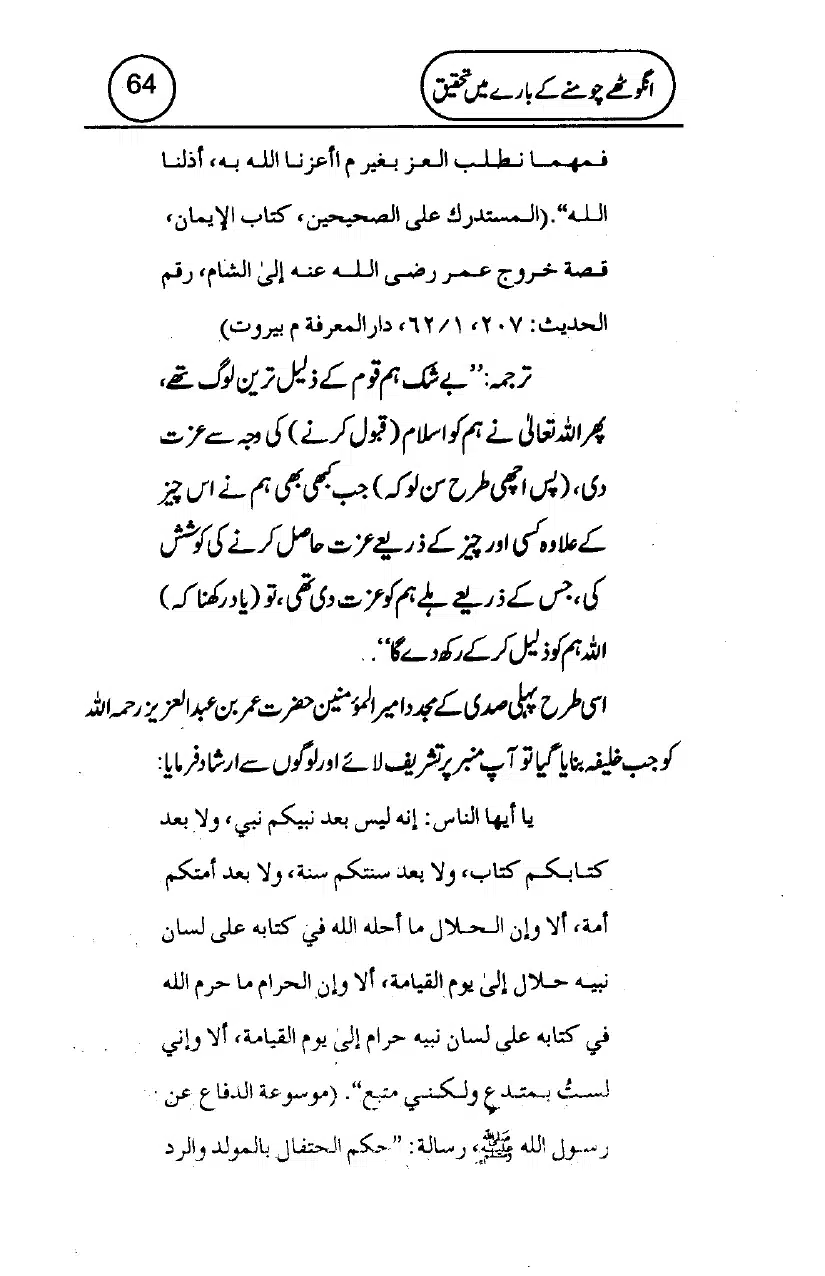 64
انگوٹھے چومنے کے بارے میں تحقیق
فمهما نطلب العز بغير م اأعزنا الله به، أذلنا
الله“.(المستدرك على الصحيحين، كتاب الإيمان،
قصة خروج عمر رضى الله عنه إلىٰ الشام، رقم
الحديث: ٢٠٧، ٦٢/١، دار المعرفة م بيروت)
ترجمہ:”بے شک ہم قوم کے ذلیل ترین لوگ تھے،
پھر اللہ تعالیٰ نے ہم کو اسلام (قبول کرنے) کی وجہ سے عزت
دی، (پس اچھی طرح سن لو کہ) جب کبھی بھی ہم نے اس چیز
کے علاوہ کسی اور چیز کے ذریعے عزت حاصل کرنے کی کوشش
کی، جس کے ذریعے پہلے ہم کو عزت دی تھی، تو (یاد رکھنا کہ)
اللہ ہم کو ذلیل کر کے رکھ دے گا“.
اسی طرح پہلی صدی کے مجدد امیر المؤمنین حضرت عمر بن عبد العزیز رحمہ اللہ
کو جب خلیفہ بنایا گیا تو آپ منبر پر تشریف لائے اور لوگوں سے ارشاد فرمایا:
يا أيها الناس: إنه ليس بعد نبيكم نبي، ولا بعد
كتابكم كتاب، ولا بعد سنتكم سنة، ولا بعد أمتكم
أمة، ألا وإن الحلال ما أحله الله في كتابه على لسان
نبيه حلال إلىٰ يوم القيامة، ألا وإن الحرام ما حرم الله
في كتابه على لسان نبيه حرام إلىٰ يوم القيامة، ألا وإني
لستُ بمتدع ولكني متبع“. (موسوعة الدفاع عن
رسول الله ﷺ، رسالة: ”حكم الحتفال بالمولد والرد